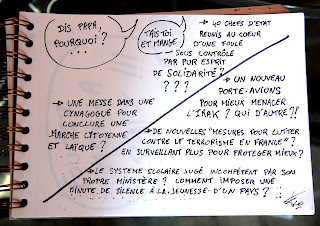 DIS PAPA,
POURQUOI ?
...
TAIS TOI
ET MANGE
→ 40 CHEFS D'ETAT
REUNIS AU COEUR
D'UNE FOULE
SOUS CONTRÔLE
PAR PUR ESPRIT
DE SOLIDARITÉ ?
? ? ?
→ UN NOUVEAU
PORTE-AVIONS
POUR MIEUX MENACER
L'IRAK ? QUI D'AUTRE ?!
→ UNE MESSE DANS UNE
CYNAGOGUE POUR
CONCLURE UNE
MARCHE CITOYENNE
ET LAÏQUE ?
→ DE NOUVELLES "MESURES POUR LUTTER
CONTRE LE TERRORISME EN FRANCE" ?
EN SURVEILLANT PLUS POUR PROTEGER MIEUX ?
→ LE SYSTEME SCOLAIRE JUGÉ INCOMPÉTENT PAR SON
PROPRE MINISTÈRE ? COMMENT IMPOSER UNE
MINUTE DE SILENCE À LA JEUNESSE D'UN PAYS ?